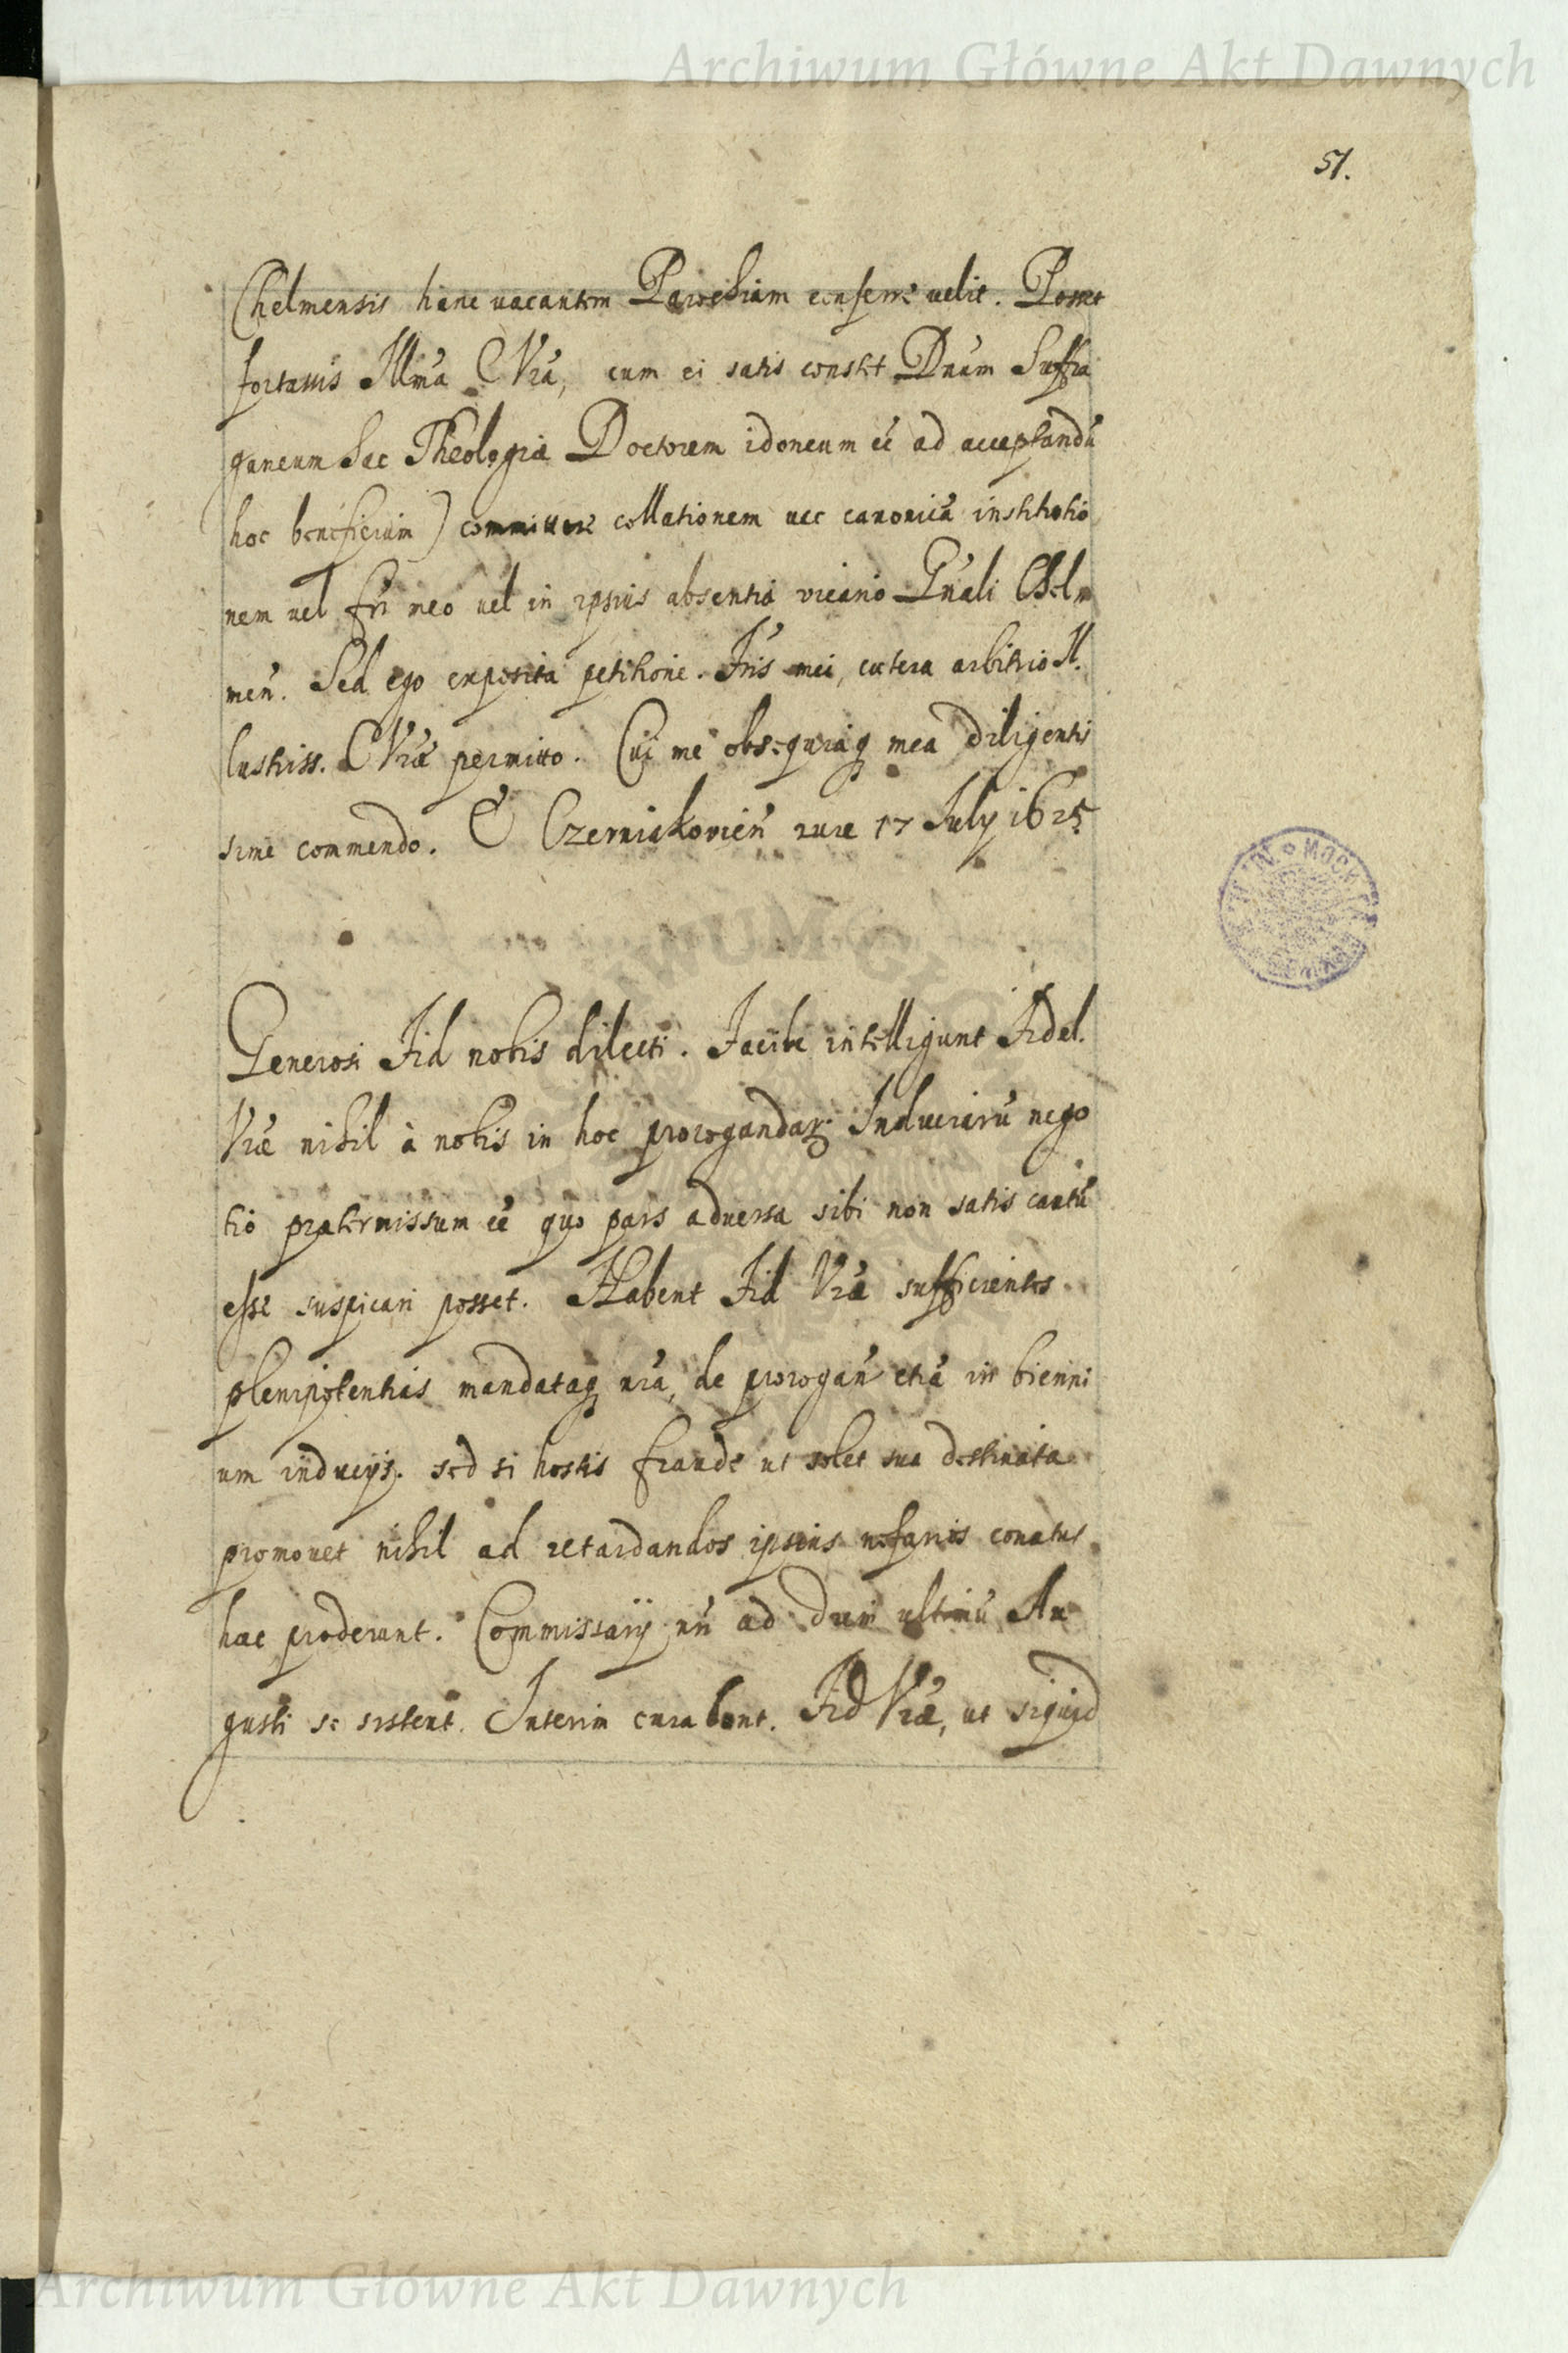 Archiwum Główne Akt Dawnych
51.
Chelmensis hanc vacantem Parochiam conferre velit. Posset
fortassis Illma C Vrã, cum ei satis constet Dnum Suffra
ganeum Sac Theologiæ Doctorem idoneum eẽ ad acceptandũ
hoc beneficium) committere collationem nec canonicã institutio
nem vel fri meo vel in ipsius absentia vicario Gnali Chelm
meñ. Sed ego exposita petitione. Fris mei, cætera arbitrio Il.
lustriss. C Vræ permitto. Cui me obsequiaq mea diligentis
sime commendo. E Czerniakovieñ rure 17 July 1625
Generosi Fid nobis dilecti. Facile intelligunt Fidel.
Vræ nihil à nobis in hoc prorogandar. Induciarũ nego
tio prætermissum eẽ quo pars adversa sibi non satis cautũ
esse suspicari posset. Habent Fid Vræ sufficientes
plenipotentias mandataq nrã, de progogañ etiã in bienni
um inducijs. sed si hostis fraude ut solet sua destinata
promovet nihil ad retardandos ipsius nefarios conatus
hæc proderunt. Commissarij nri ad diem ultimũ Au
gusti se sistent. Interim curabunt. Fid Vræ, ut siquid
Archiwum Główne Akt Dawnych